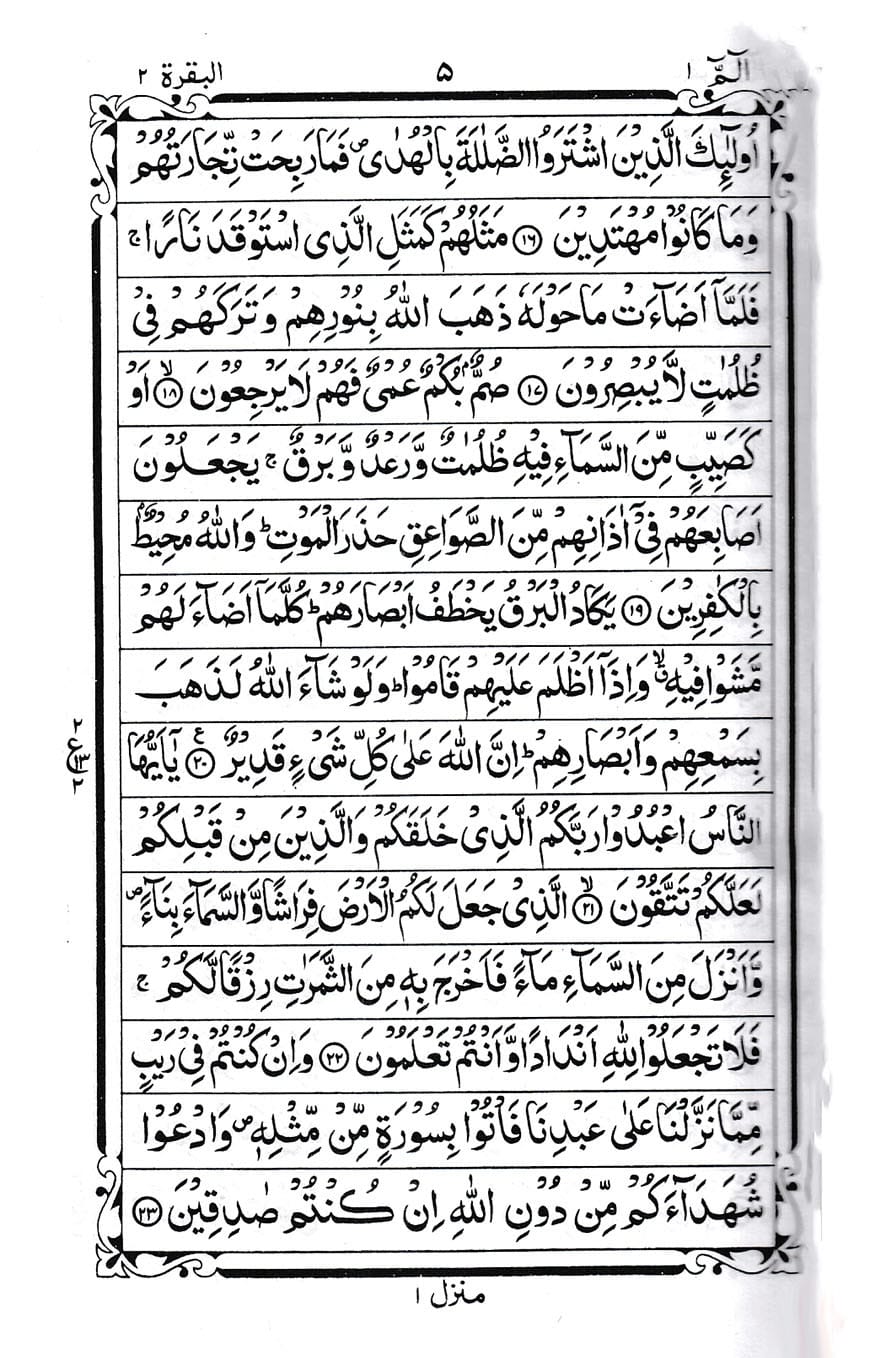 الٓمّٓ ۱ ۵ البقرة ۲
اُولٰٓئِكَ الَّذِیْنَ اشْتَرَوُا الضَّلٰلَةَ بِالْهُدٰی ۪ فَمَا رَبِحَتْ تِّجَارَتُهُمْ
وَمَا كَانُوْا مُهْتَدِیْنَ ﴿۱۶﴾ مَثَلُهُمْ كَمَثَلِ الَّذِی اسْتَوْقَدَ نَارًا ۚ
فَلَمَّاۤ اَضَآءَتْ مَا حَوْلَهٗ ذَهَبَ اللّٰهُ بِنُوْرِهِمْ وَتَرَكَهُمْ فِیْ
ظُلُمٰتٍ لَّا یُبْصِرُوْنَ ﴿۱۷﴾ صُمٌّۢ بُكْمٌ عُمْیٌ فَهُمْ لَا یَرْجِعُوْنَ ﴿۱۸﴾ۙ اَوْ
كَصَیِّبٍ مِّنَ السَّمَآءِ فِیْهِ ظُلُمٰتٌ وَّرَعْدٌ وَّبَرْقٌ ۚ یَجْعَلُوْنَ
اَصَابِعَهُمْ فِیْۤ اٰذَانِهِمْ مِّنَ الصَّوَاعِقِ حَذَرَ الْمَوْتِ ؕ وَاللّٰهُ مُحِیْطٌۢ
بِالْكٰفِرِیْنَ ﴿۱۹﴾ یَكَادُ الْبَرْقُ یَخْطَفُ اَبْصَارَهُمْ ؕ كُلَّمَاۤ اَضَآءَ لَهُمْ
مَّشَوْا فِیْهِ ۙۗ وَاِذَاۤ اَظْلَمَ عَلَیْهِمْ قَامُوْا ؕ وَلَوْ شَآءَ اللّٰهُ لَذَهَبَ
بِسَمْعِهِمْ وَاَبْصَارِهِمْ ؕ اِنَّ اللّٰهَ عَلٰی كُلِّ شَیْءٍ قَدِیْرٌ ﴿۲۰﴾ع یٰۤاَیُّهَا
۲ ع ۱۳ ۲
النَّاسُ اعْبُدُوْا رَبَّكُمُ الَّذِیْ خَلَقَكُمْ وَالَّذِیْنَ مِنْ قَبْلِكُمْ
لَعَلَّكُمْ تَتَّقُوْنَ ﴿۲۱﴾ۙ الَّذِیْ جَعَلَ لَكُمُ الْاَرْضَ فِرَاشًا وَّالسَّمَآءَ بِنَآءً ۪
وَّاَنْزَلَ مِنَ السَّمَآءِ مَآءً فَاَخْرَجَ بِهٖ مِنَ الثَّمَرٰتِ رِزْقًا لَّكُمْ ۚ
فَلَا تَجْعَلُوْا لِلّٰهِ اَنْدَادًا وَّاَنْتُمْ تَعْلَمُوْنَ ﴿۲۲﴾ وَاِنْ كُنْتُمْ فِیْ رَیْبٍ
مِّمَّا نَزَّلْنَا عَلٰی عَبْدِنَا فَاْتُوْا بِسُوْرَةٍ مِّنْ مِّثْلِهٖ ۪ وَادْعُوْا
شُهَدَآءَكُمْ مِّنْ دُوْنِ اللّٰهِ اِنْ كُنْتُمْ صٰدِقِیْنَ ﴿۲۳﴾
منزل ۱